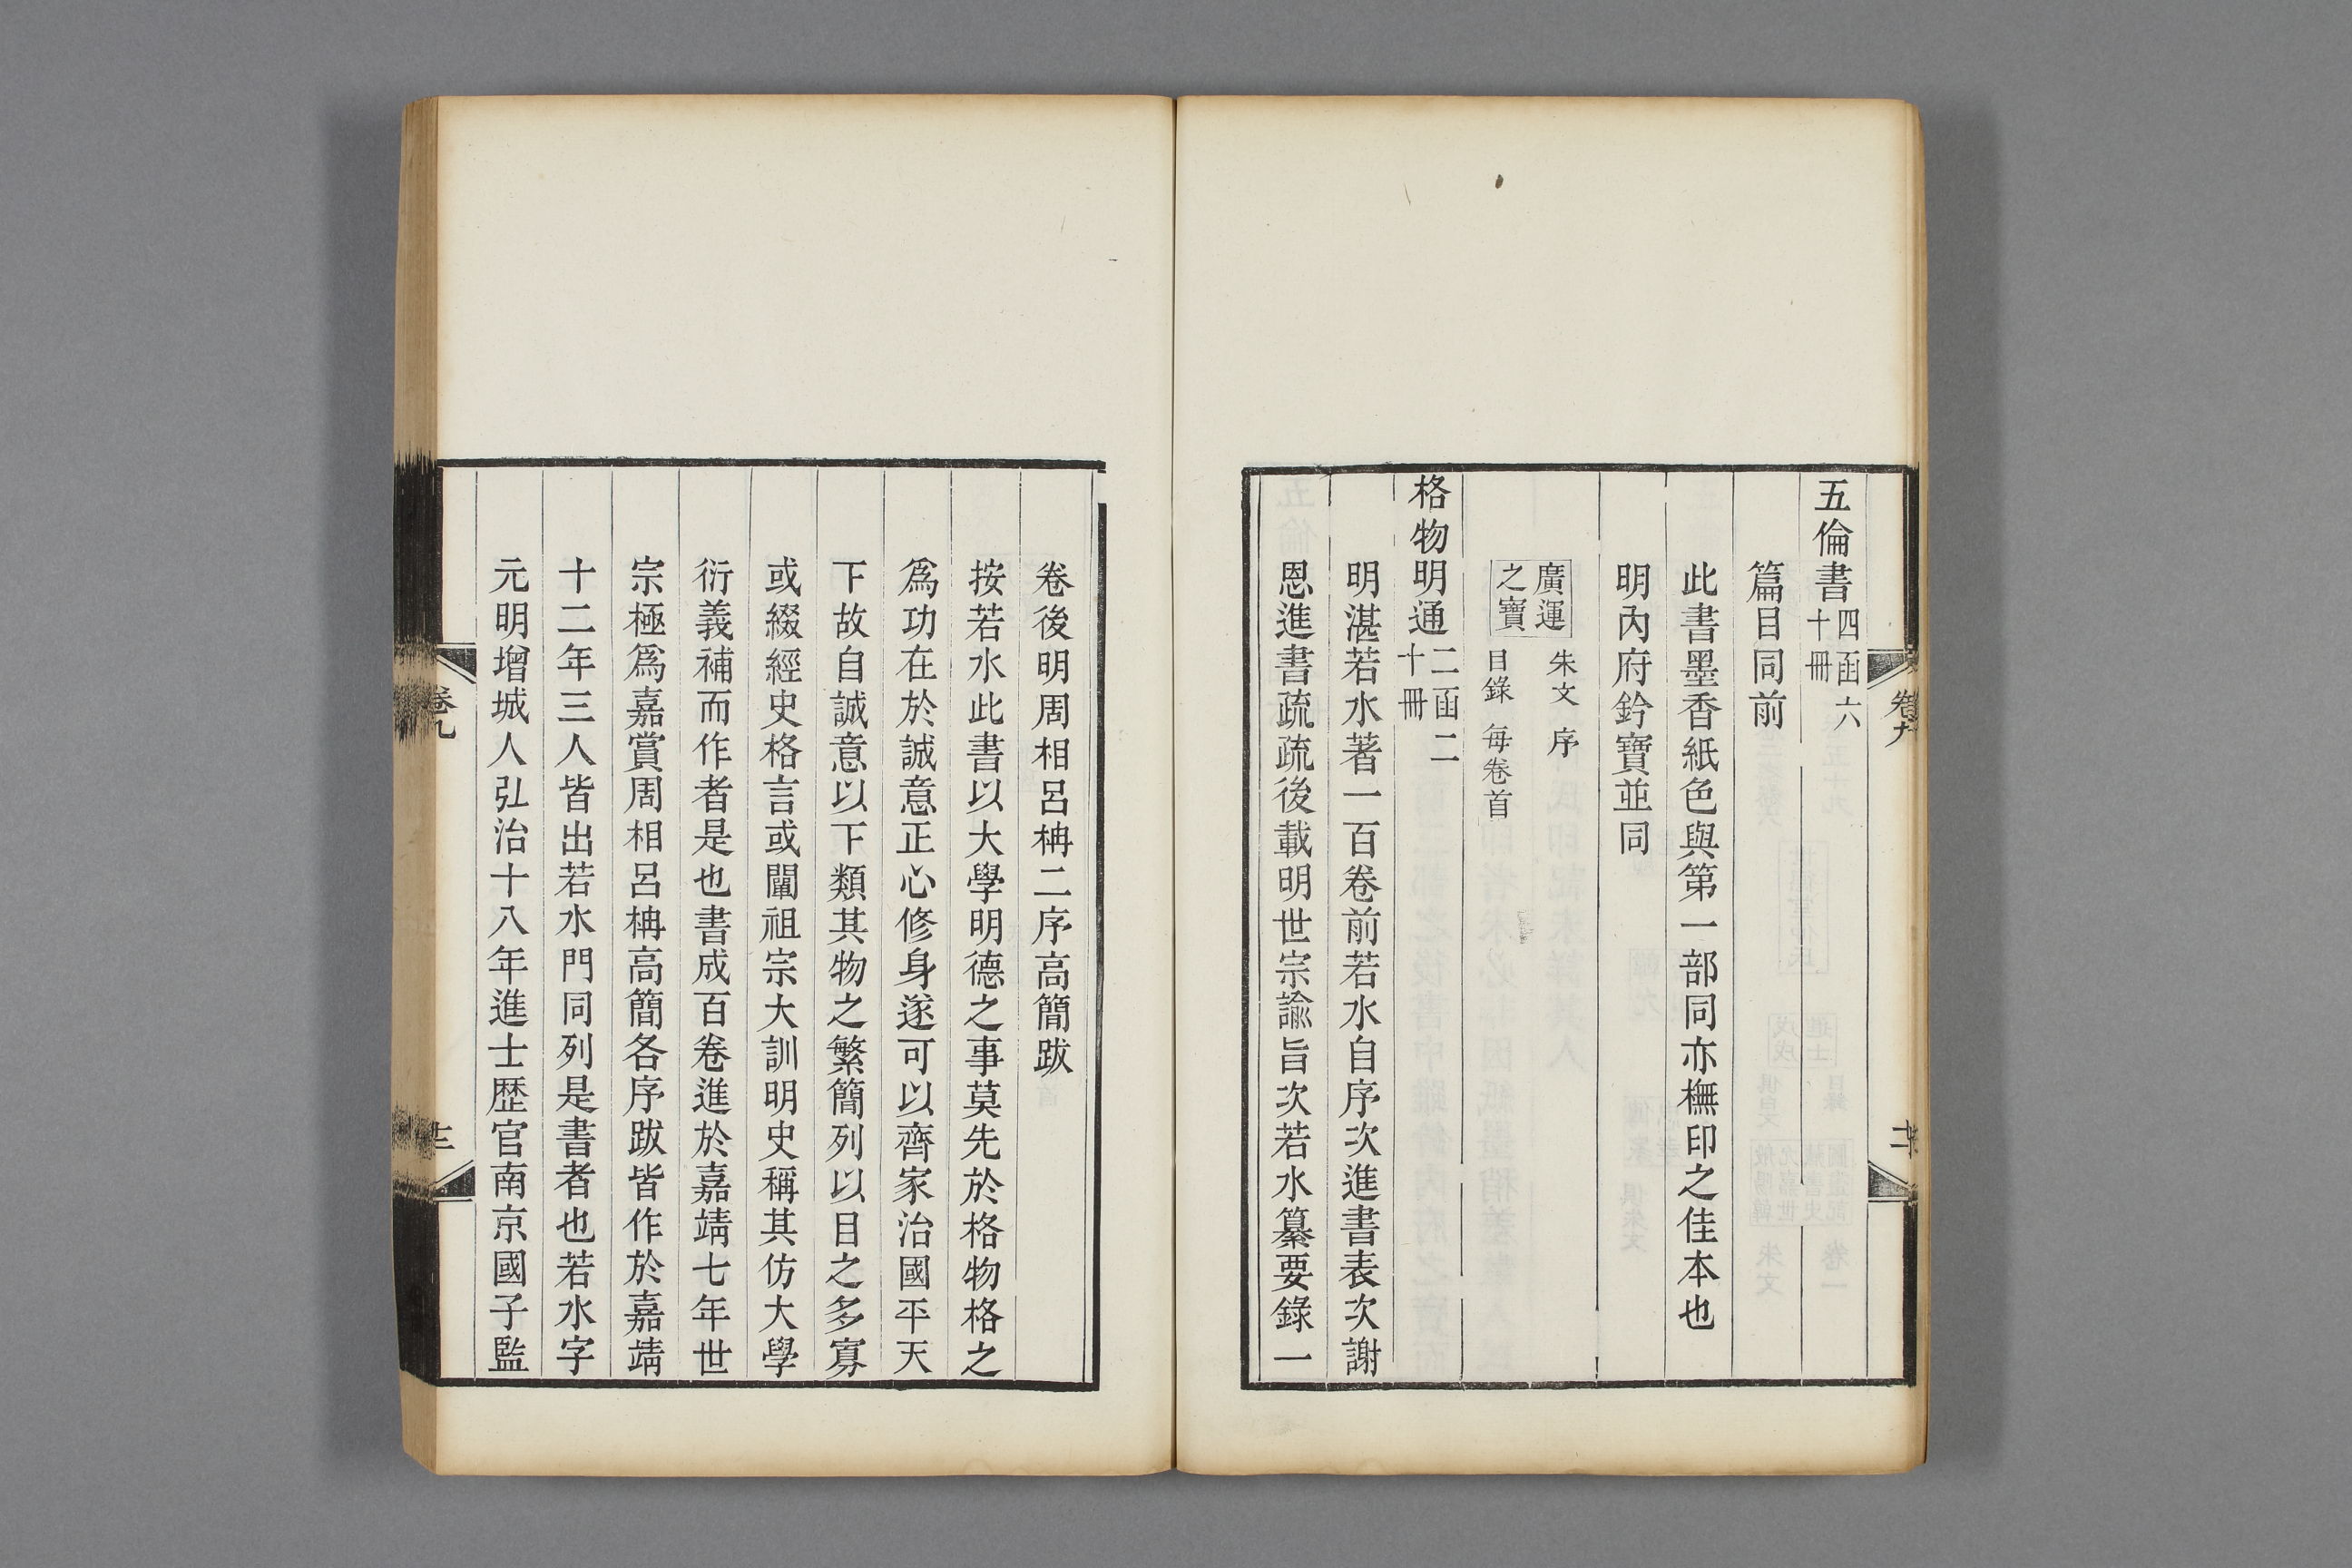 五倫書四函六十冊
篇目同前
此書墨香紙色與第一部同亦橅印之佳本也
明內府鈐寶並同
廣運之寶 朱文 序 目錄 每卷首
格物明通二函二十冊
明湛若水著一百卷前若水自序次進書表次謝
恩進書疏疏後載明世宗諭旨次若水纂要錄一
卷後明周相呂柟二序高簡跋
按若水此書以大學明德之事莫先於格物格之
為功在於誠意正心修身遂可以齊家治國平天
下故自誠意以下類其物之繁簡列以目之多寡
或綴經史格言或闡祖宗大訓明史稱其仿大學
衍義補而作者是也書成百卷進於嘉靖七年世
宗極為嘉賞周相呂柟高簡各序跋皆作於嘉靖
十二年三人皆出若水門同列是書者也若水字
元明增城人弘治十八年進士歷官南京國子監
卷九